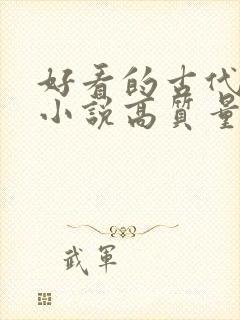 好看的古代
小説高質量
武軍